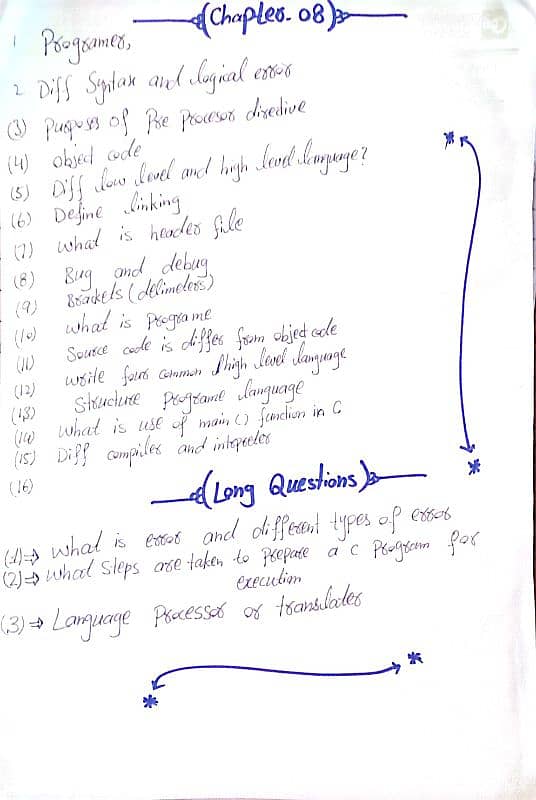 (Chapter. 08)
1 Programer,
2 Diff Syntax and logical error
(3) Purposes of Pre Processor diredive
(4) object code
(5) Diff low level and high level language?
(6) Define linking
(7) what is header file
(8) Bug and debug
(9) Brackets (delimeters)
(10) what is Programe
(11) Source code is differ from object code
(12) write four common high level language
(13) Structure Programe language
(14) what is use of main () function in C
(15) Diff compiler and intepreter
(16)
(Long Questions)
(1)⇒ what is error and different types of error
(2)⇒ what steps are taken to prepare a C Program for
execution
(3)⇒ Language Processor or translater